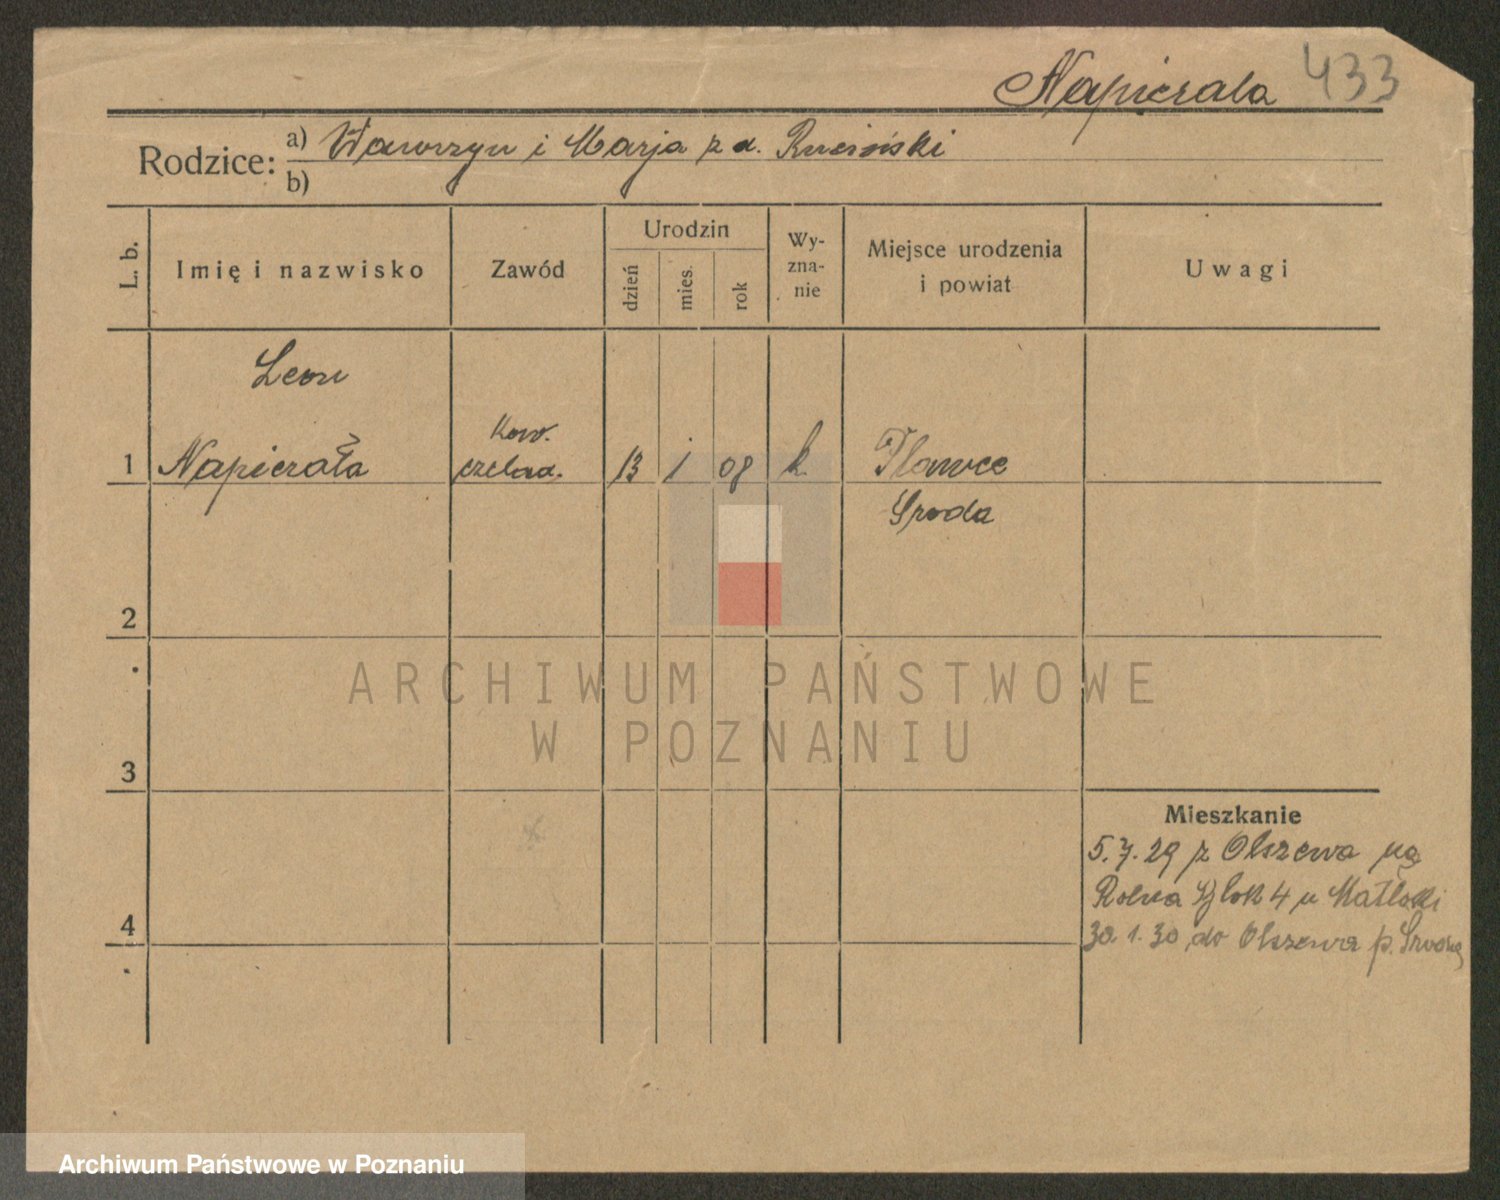 Napierala 433
Rodzice: a) Wawrzyn i Marja z d. Ruciński
b)
L. b. Imię i nazwisko Zawód Urodzin dzień mies. rok Wy-zna-nie Miejsce urodzenia i powiat Uwagi
Leon
Kow.
1 Napierała czelad. 13 1 08 k
Środa
2
ARCHIWUM PAŃSTWOWE
W POZNANIU
3
Mieszkanie
5.7.29 z Olszewa na
Rolna Blok 4 u
4
30.1.30 do Olszewa p. Środą
Archiwum Państwowe w Poznaniu